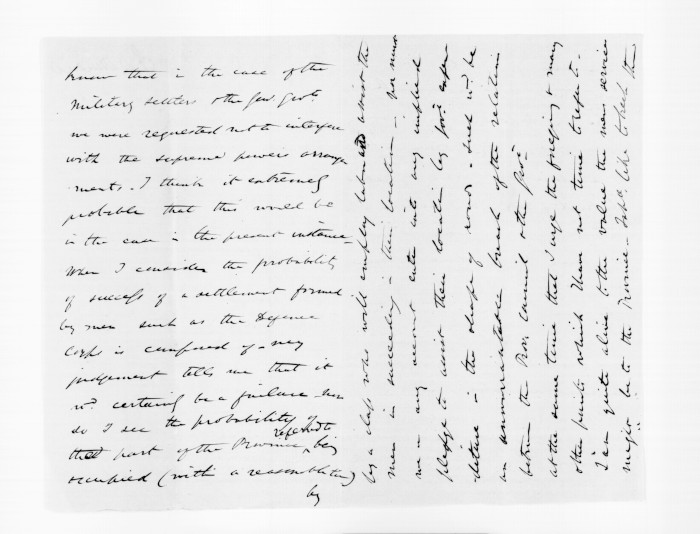 know that in the case of the
Military settlers & the Gen. Govt.
we were requested not to interfere
with the supreme powers arrange
ments. I think it extremely
probable that this would be
in the case in the present instance.
When I consider the probability
of success of a settlement formed
by men such as the Defence
Corps is composed of my
judgement tells me that it
wd. certainly be a failure
so I see the probability of
that part of the Province referred to being
occupied (with a reasonable time)
by
by a class who will employ labor and assist the
men in succeeding in their location - nor must
we in any account enter into any implied
pledge to assist their location by Govt. expen
diture in the shape of roads. Such wd. be
an unwarrantable breach of the relations
between the Prov. Council & the Govt.
at the same time that I urge the foregoing & many
other points which I have not time to refer to.
I am quite alive to the value the men service
might be to the Province. I shd. like to keep them